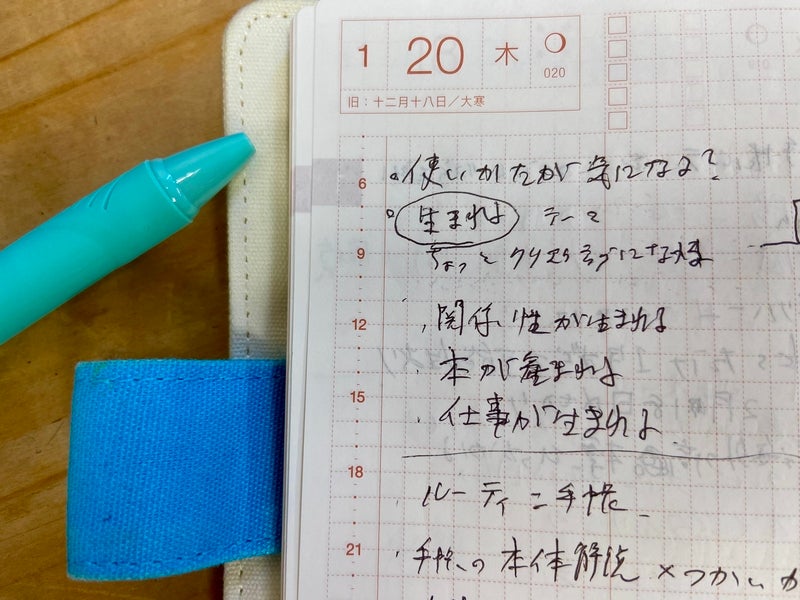 1 20 木
020
旧：十二月十八日／大寒
6
使いかたが気になる？
生まれる テーマ
9
ちょっと
12
関係性が生まれる
本が産まれる
15
仕事が生まれる
18
ルーティン手帳
21
手帳の本体解説 × つかいか